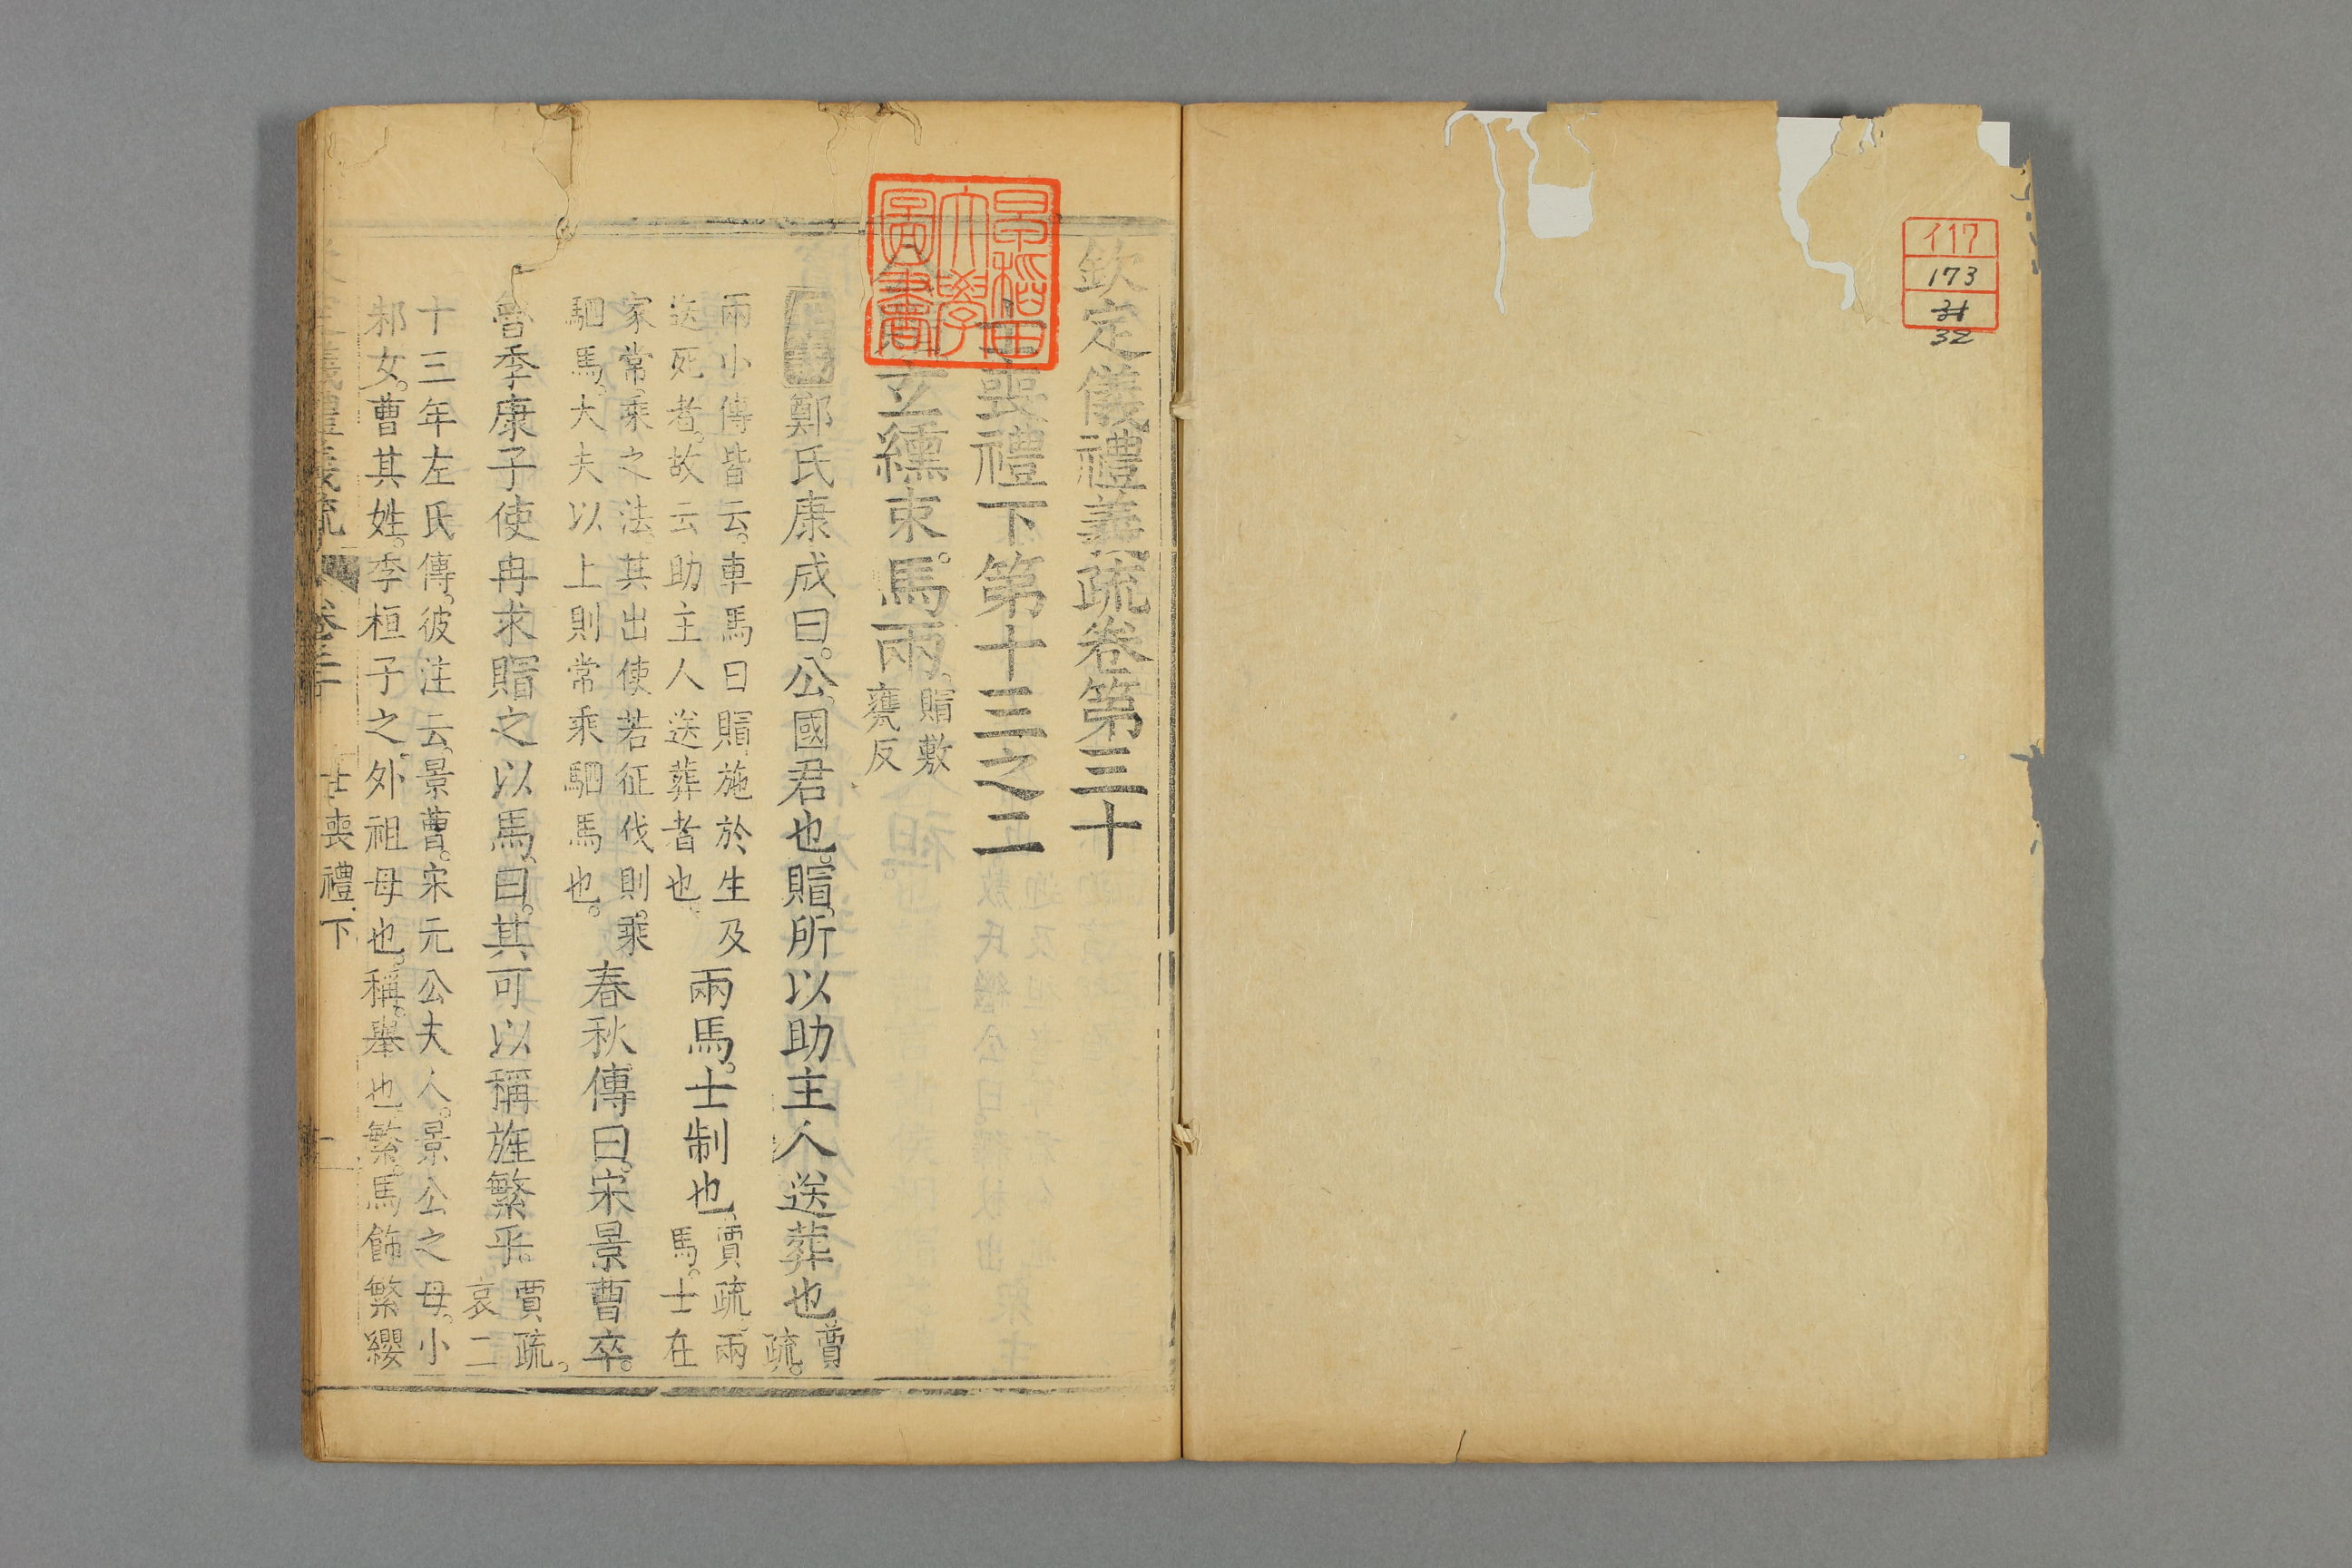 イ17
173
31
32
早稻田大學圖書
欽定儀禮義疏卷第三十
士喪禮下第十三之二
公賵玄纁束馬兩。
賵敷
甕反
鄭氏康成曰。公。國君也。賵。所以助主人送葬也
賈
疏。
兩小傳皆云。車馬曰賵。施於生及
送死者。故云助主人送葬者也。
兩馬。士制也
賈疏。兩
馬。士在
家常乘之法。其出使若征伐則。乘
駟馬。大夫以上則常乘駟馬也。
春秋傳曰。宋景曹卒。
魯季康子使冉求賵之以馬。曰。其可以稱旌繁乎。
賈疏。
哀二
十三年左氏傳。彼注云。景曹。宋元公夫人。景公之母。小
邾女。曹其姓。季桓子之外祖母也。稱。舉也。繁。馬飾繁纓
欽定儀禮義疏 卷三十 士喪禮下 一